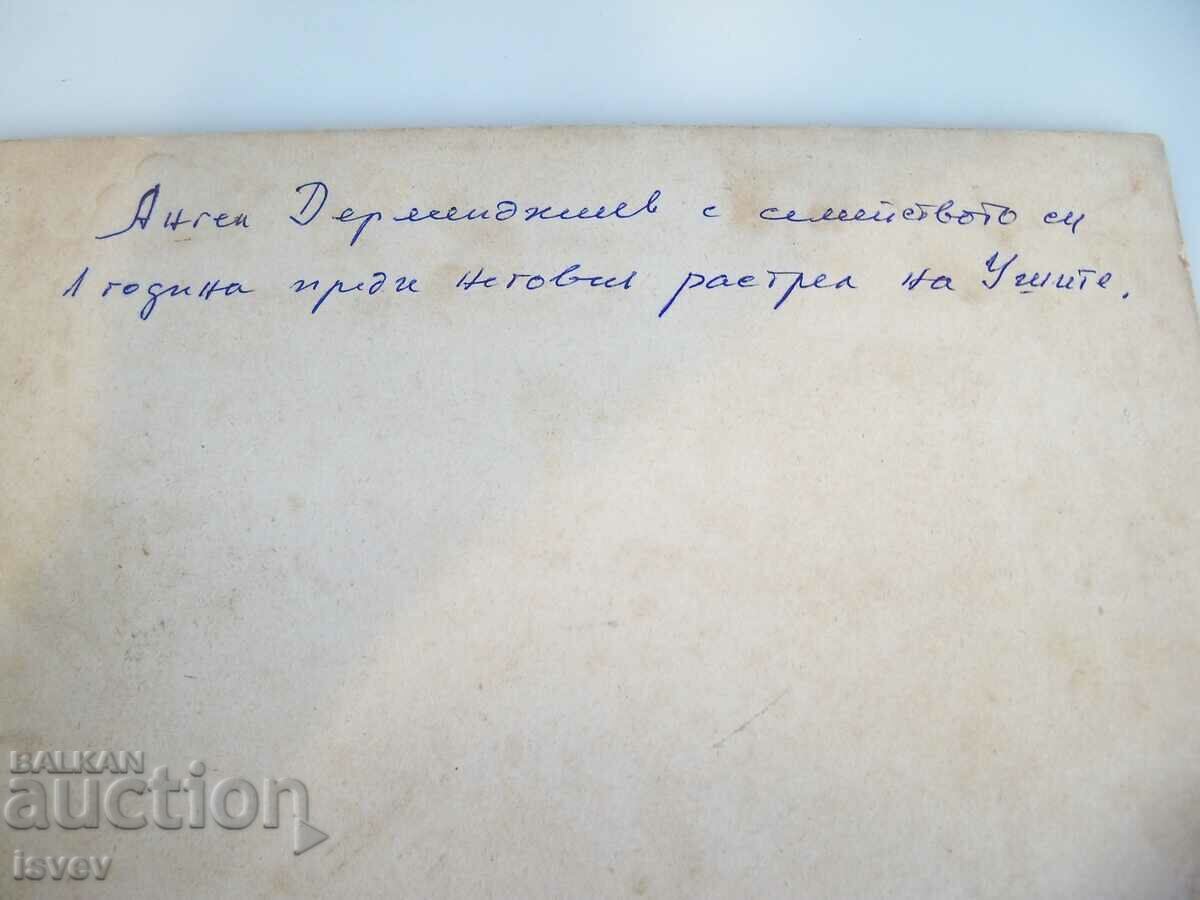 Ангел Дерменджиев с семейството си
1 година преди неговия растрел на Ушите.
BALKAN
auction
isvev